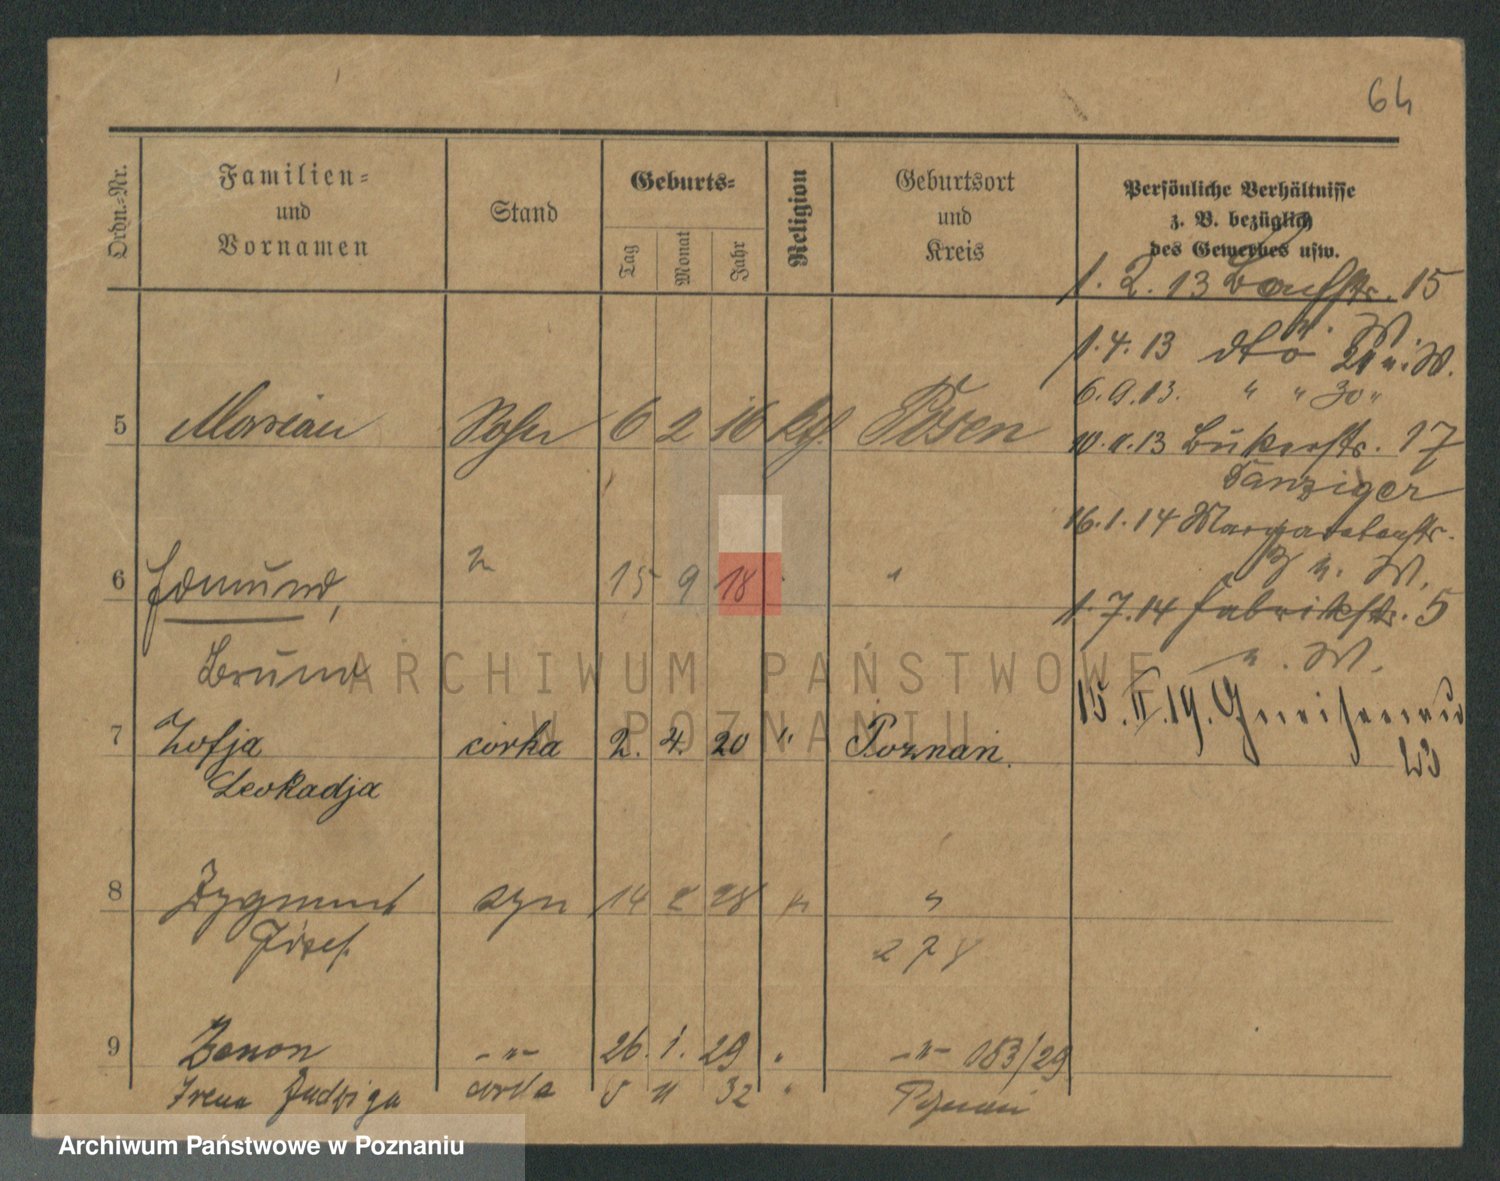 64
Ordn.-Nr.
Familien-
und
Vornamen
Stand
Geburts-
Tag
Monat
Jahr
Religion
Geburtsort
und
Kreis
Persönliche Verhältnisse
z. B. bezüglich
des Gewerbes usw.
1. 2. 13 15
1. 4. 13 dto 21 n. W.
6. 9. 13. " " 30 "
5 Marian Sohn 6 2 16 Posen
13 Bukerstr. 17
Danziger
16. 1. 14 Margaretenstr.
n. W.
6 Edmund, " 15 9 18 " "
1. 7. 14 Fabrikstr. 5
Bruno
n. W.
15. II. 19. Gneisenau
7 Zofja córka 2. 4. 20 " Poznań.
Leokadja
8 Zygmunt syn 14 2 28 " "
Józef
278
9 Zenon - " - 26. 1. 29 " - " - 183/29
Irena Jadwiga córka 5 11 32 " Poznań
ARCHIWUM PAŃSTWOWE
W POZNANIU
Archiwum Państwowe w Poznaniu